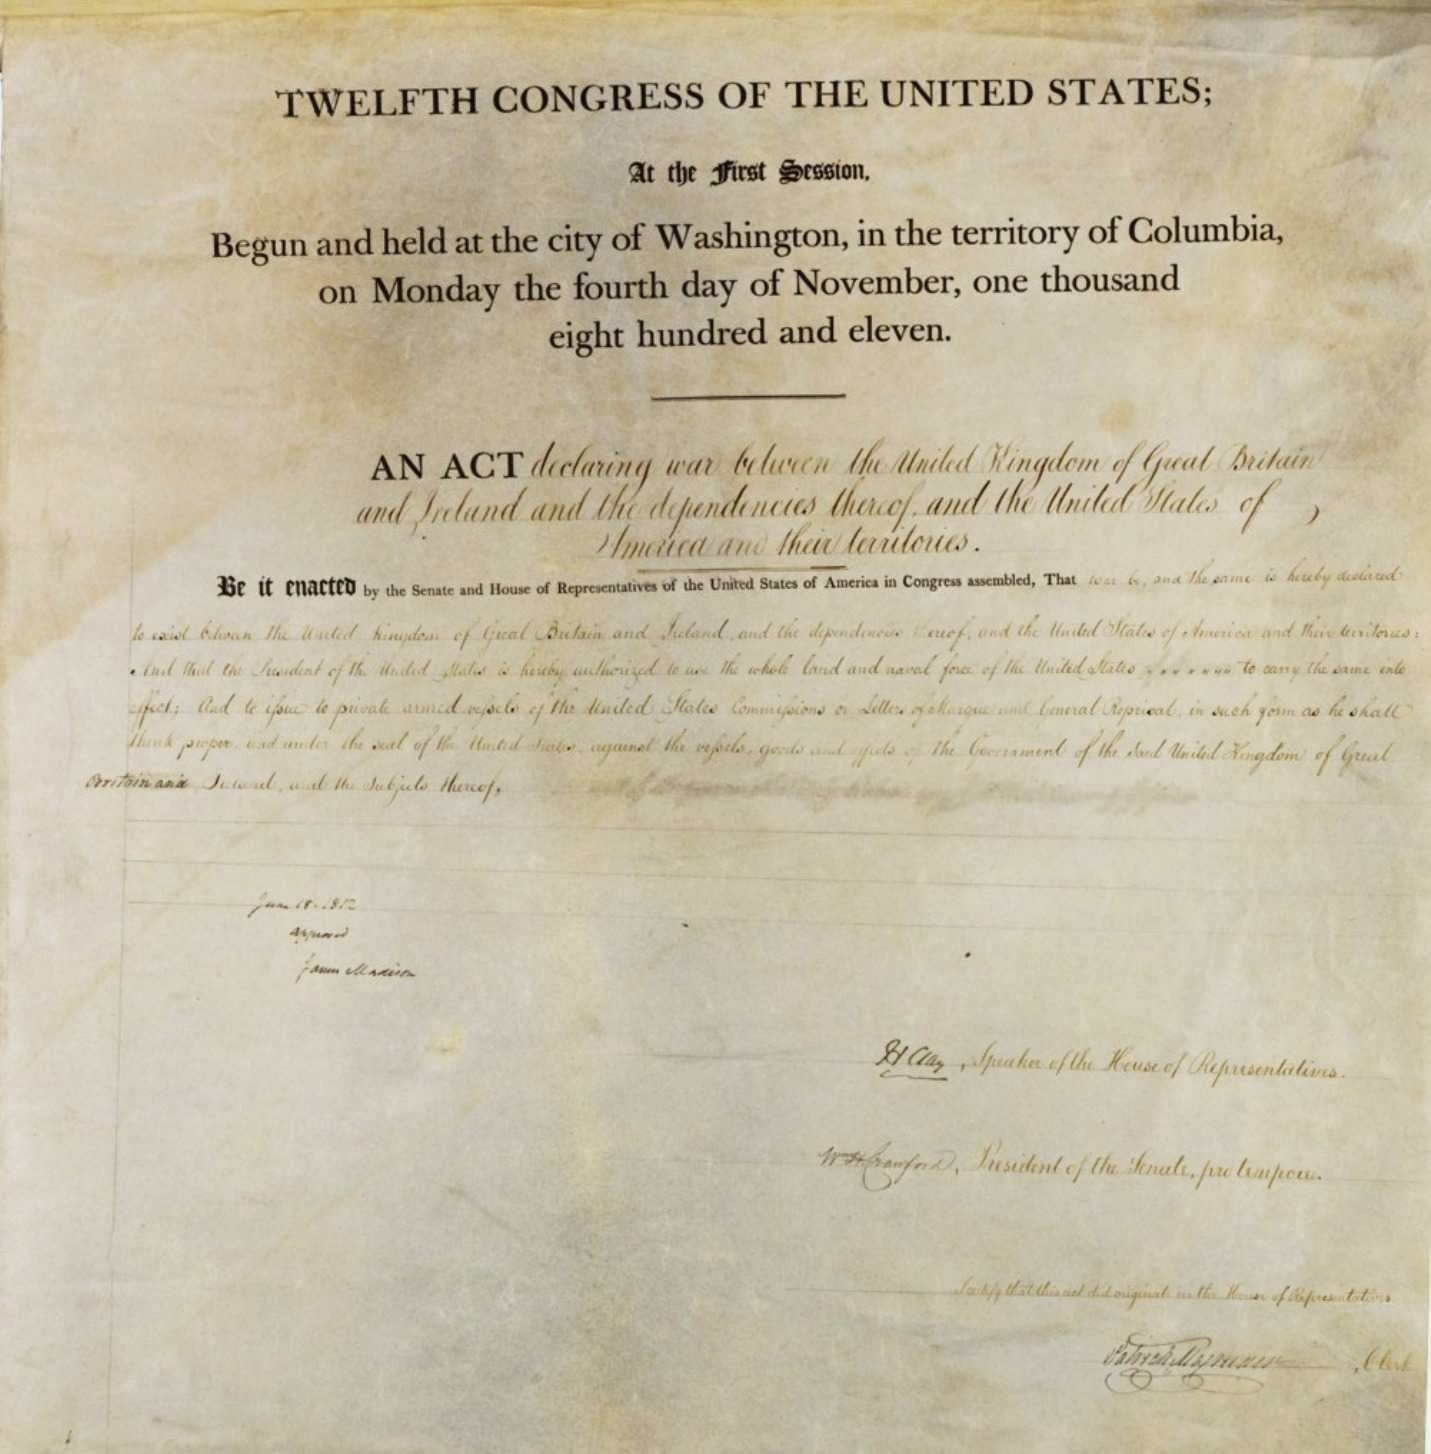 TWELFTH CONGRESS OF THE UNITED STATES;
At the First Session,
Begun and held at the city of Washington, in the territory of Columbia,
on Monday the fourth day of November, one thousand
eight hundred and eleven.
AN ACT declaring war between the United Kingdom of Great Britain
and Ireland and the dependencies thereof, and the United States of
America and their territories.
Be it enacted by the Senate and House of Representatives of the United States of America in Congress assembled, That war be, and the same is hereby declared
to exist between the United Kingdom of Great Britain and Ireland, and the dependencies thereof, and the United States of America and their territories:
And that the President of the United States is hereby authorized to use the whole land and naval force of the United States to carry the same into
effect; And to issue to private armed vessels of the United States Commissions or Letters of Marque and General Reprisal, in such form as he shall
think proper, and under the seal of the United States, against the vessels, goods and effects of the Government of the said United Kingdom of Great
Britain and Ireland, and the Subjects thereof,
June 18. 1812
approved
James Madison
H Clay, Speaker of the House of Representatives.
Wm H Crawford, President of the Senate, pro tempore.
I certify that this act did originate in the House of Representatives
Patrick Magruder, Clerk